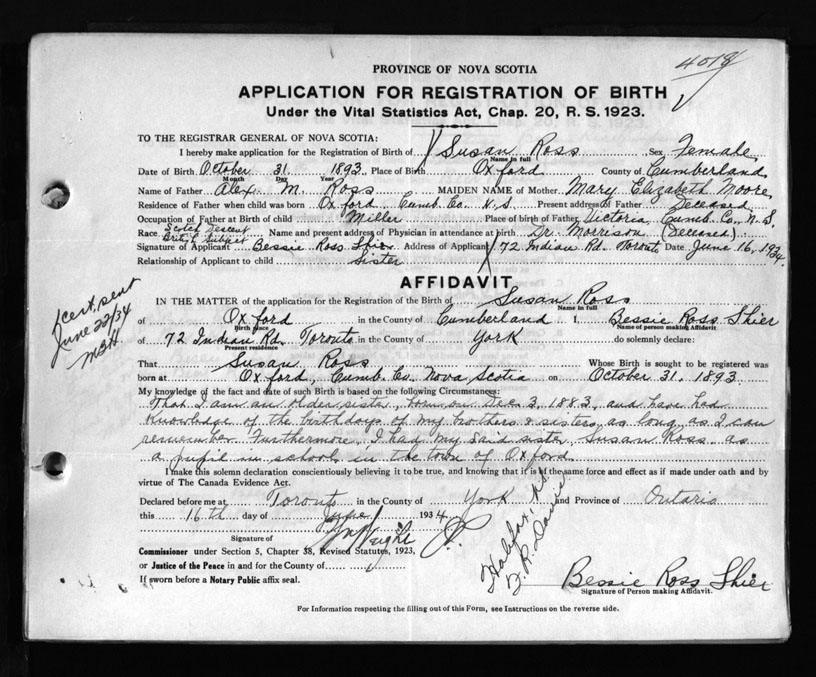 4018
PROVINCE OF NOVA SCOTIA
APPLICATION FOR REGISTRATION OF BIRTH
Under the Vital Statistics Act, Chap. 20, R. S. 1923.
TO THE REGISTRAR GENERAL OF NOVA SCOTIA:
I hereby make application for the Registration of Birth of Susan Ross Sex Female
Name in full
Date of Birth October 31 1893 Place of Birth Oxford County of Cumberland
Month Day Year
Name of Father Alex. M. Ross MAIDEN NAME of Mother Mary Elizabeth Moore
Residence of Father when child was born Oxford Cumb. Co. N.S. Present address of Father Deceased
Occupation of Father at Birth of child Miller Place of birth of Father Victoria, Cumb. Co. N.S.
Race Scotch Descent British Subject Name and present address of Physician in attendance at birth Dr. Morrison (Deceased)
Signature of Applicant Bessie Ross Shier Address of Applicant 72 Indian Rd. Toronto Date June 16, 1934.
Relationship of Applicant to child Sister
AFFIDAVIT
1 cert. sent
June 22/34
MBH
IN THE MATTER of the application for the Registration of the Birth of Susan Ross
Name in Full
of Oxford in the County of Cumberland I, Bessie Ross Shier
Birth place Name of person making Affidavit
of 72 Indian Rd. Toronto in the County of York do solemnly declare:
Present residence
That Susan Ross Whose Birth is sought to be registered was
born at Oxford, Cumb. Co. Nova Scotia on October 31, 1893
My knowledge of the fact and date of such Birth is based on the following Circumstances:
That I am an older sister, born on Dec 3, 1883, and have had
knowledge of the birthdays of my brothers & sisters as long as I can
remember. Furthermore, I had my said sister, Susan Ross as
a pupil in school, in the town of Oxford
I make this solemn declaration conscientiously believing it to be true, and knowing that it is of the same force and effect as if made under oath and by
virtue of The Canada Evidence Act.
Declared before me at Toronto in the County of York and Province of Ontario
this 16th day of June 1934
Signature of
Commissioner under Section 5, Chapter 38, Revised Statutes, 1923,
or Justice of the Peace in and for the County of
If sworn before a Notary Public affix seal.
Halifax N.S.
Davis
Bessie Ross Shier
Signature of Person making Affidavit.
For Information respecting the filling out of this Form, see Instructions on the reverse side.